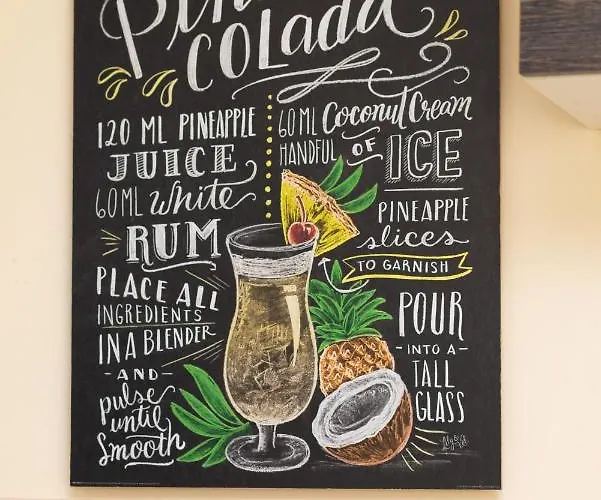 COLada
120 ML PINEAPPLE
JUICE
60 ML White
RUM
60 ML Coconut Cream
HANDFUL OF ICE
PINEAPPLE
slices
TO GARNISH
PLACE ALL
INGREDIENTS
IN A BLENDER
- AND -
pulse
until
Smooth
POUR
- INTO A -
TALL
GLASS